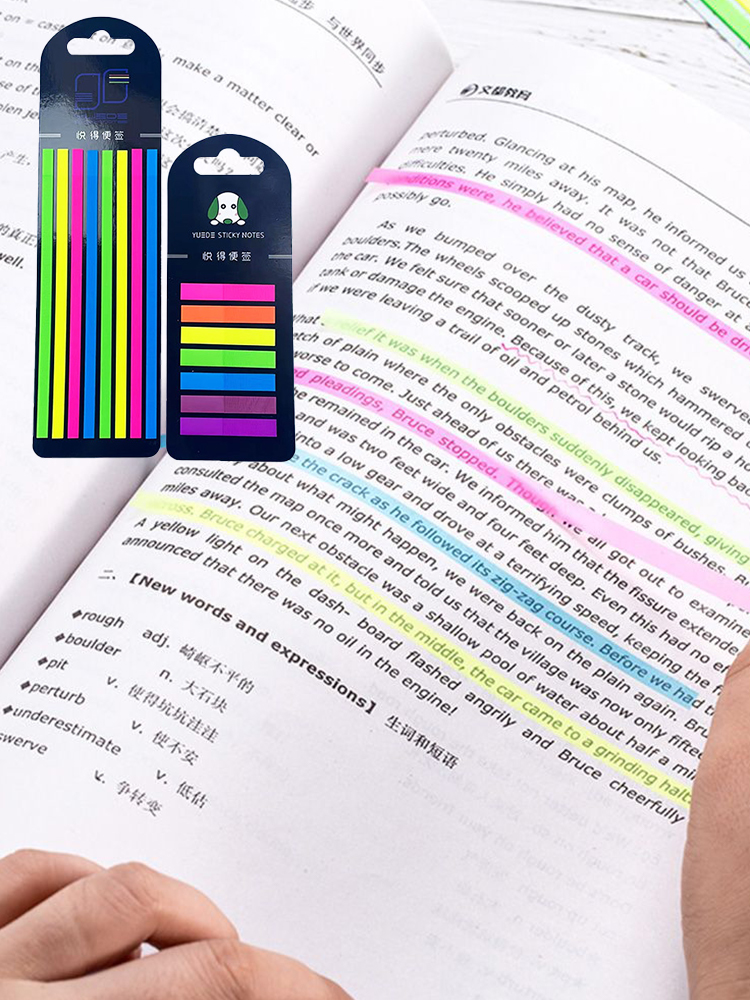 与世界同步
make a matter clear or
产生,
的真正
well.
悦得便签
YUEDE STICKY NOTES
悦得便签
文都教育
perturbed. Glancing at his map, he informed us
mere twenty miles away. It was not that Bruc
difficulties. He simply had no sense of danger at a
nditions were, he believed that a car should be dri
possibly go.
As we bumped over the dusty track, we swerve
boulders. The wheels scooped up stones which hammered
the car. We felt sure that sooner or later a stone would rip a ho
tank or damage the engine. Because of this, we kept looking bac
if we were leaving a trail of oil and petrol behind us.
what relief it was when the boulders suddenly disappeared, giving
etch of plain where the only obstacles were clumps of bushes. B
worse to come. Just ahead of us there was
d pleadings, Bruce stopped. Though we all got out to examin
he remained in the car. We informed him that the fissure extende
and was two feet wide and four feet deep. Even this had no ef
into a low gear and drove at a terrifying speed, keeping the f
e the crack as he followed its zig-zag course. Before we had t
y about what might happen, we were back on the plain again. Bru
consulted the map once more and told us that the village was now only fifte
miles away. Our next obstacle was a shallow pool of water about half a mi
across. Bruce charged at it, but in the middle, the car came to a grinding halt.
A yellow light on the dash- board flashed angrily and Bruce cheerfully
announced that there was no oil in the engine!
二、【New words and expressions】 生词和短语
◆rough adj. 崎岖不平的
◆boulder n. 大石块
◆pit v. 使得坑坑洼洼
◆perturb v. 使不安
◆underestimate v. 低估
swerve v. 急转变